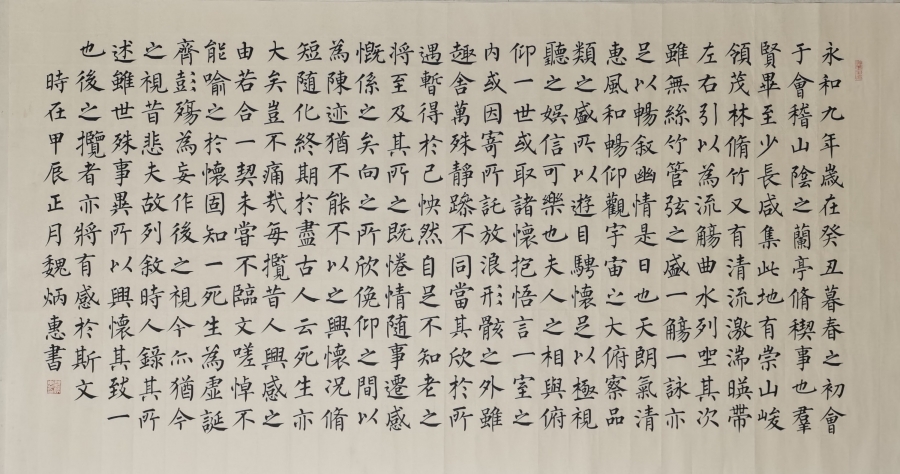 永和九年歲在癸丑暮春之初會
于會稽山陰之蘭亭脩禊事也羣
賢畢至少長咸集此地有崇山峻
領茂林脩竹又有清流激湍暎帶
左右引以為流觴曲水列坐其次
雖無絲竹管弦之盛一觴一詠亦
足以暢叙幽情是日也天朗氣清
惠風和暢仰觀宇宙之大俯察品
類之盛所以遊目騁懷足以極視
聽之娛信可樂也夫人之相與俯
仰一世或取諸懷抱悟言一室之
內或因寄所託放浪形骸之外雖
趣舍萬殊靜躁不同當其欣於所
遇暫得於己怏然自足不知老之
將至及其所之既惓情隨事遷感
慨係之矣向之所欣俛仰之間以
為陳迹猶不能不以之興懷況脩
短隨化終期於盡古人云死生亦
大矣豈不痛哉每攬昔人興感之
由若合一契未嘗不臨文嗟悼不
能喻之於懷固知一死生為虛誕
齊彭殤為妄作後之視今尒猶今
之視昔悲夫故列敘時人錄其所
述雖世殊事異所以興懷其致一
也後之攬者亦將有感於斯文
時在甲辰正月魏炳惠書